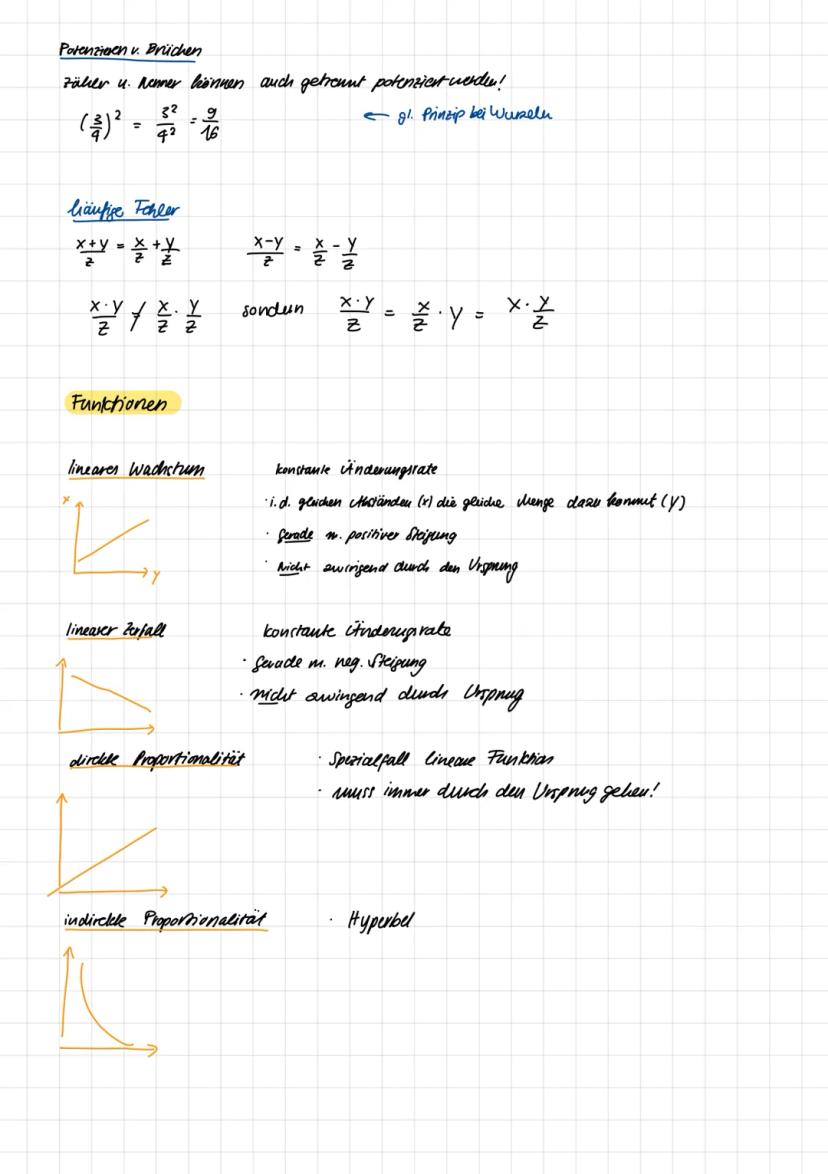 Potenzieren v. Brüchen
Zähler u. Nenner können auch getrennt potenziert werden!
(3/4)² = 3²/4² = 9/16 ← gl. Prinzip bei Wurzeln
häufige Fehler
x+y/z = x/z + y/z x-y/z = x/z - y/z
x·y/z ≠ x/z · y/z sondern x·y/z = x/z · y = x · y/z
Funktionen
lineares Wachstum konstante Änderungsrate
x
· i.d. gleichen Abständen (x) die gleiche Menge dazu kommt (y)
· Gerade m. positiver Steigung
· Nicht zwingend durch den Ursprung
y
linearer Zerfall konstante Änderungsrate
· Gerade m. neg. Steigung
· nicht zwingend durch Ursprung
direkte Proportionalität · Spezialfall lineare Funktion
· muss immer durch den Ursprung gehen!
indirekte Proportionalität · Hyperbel